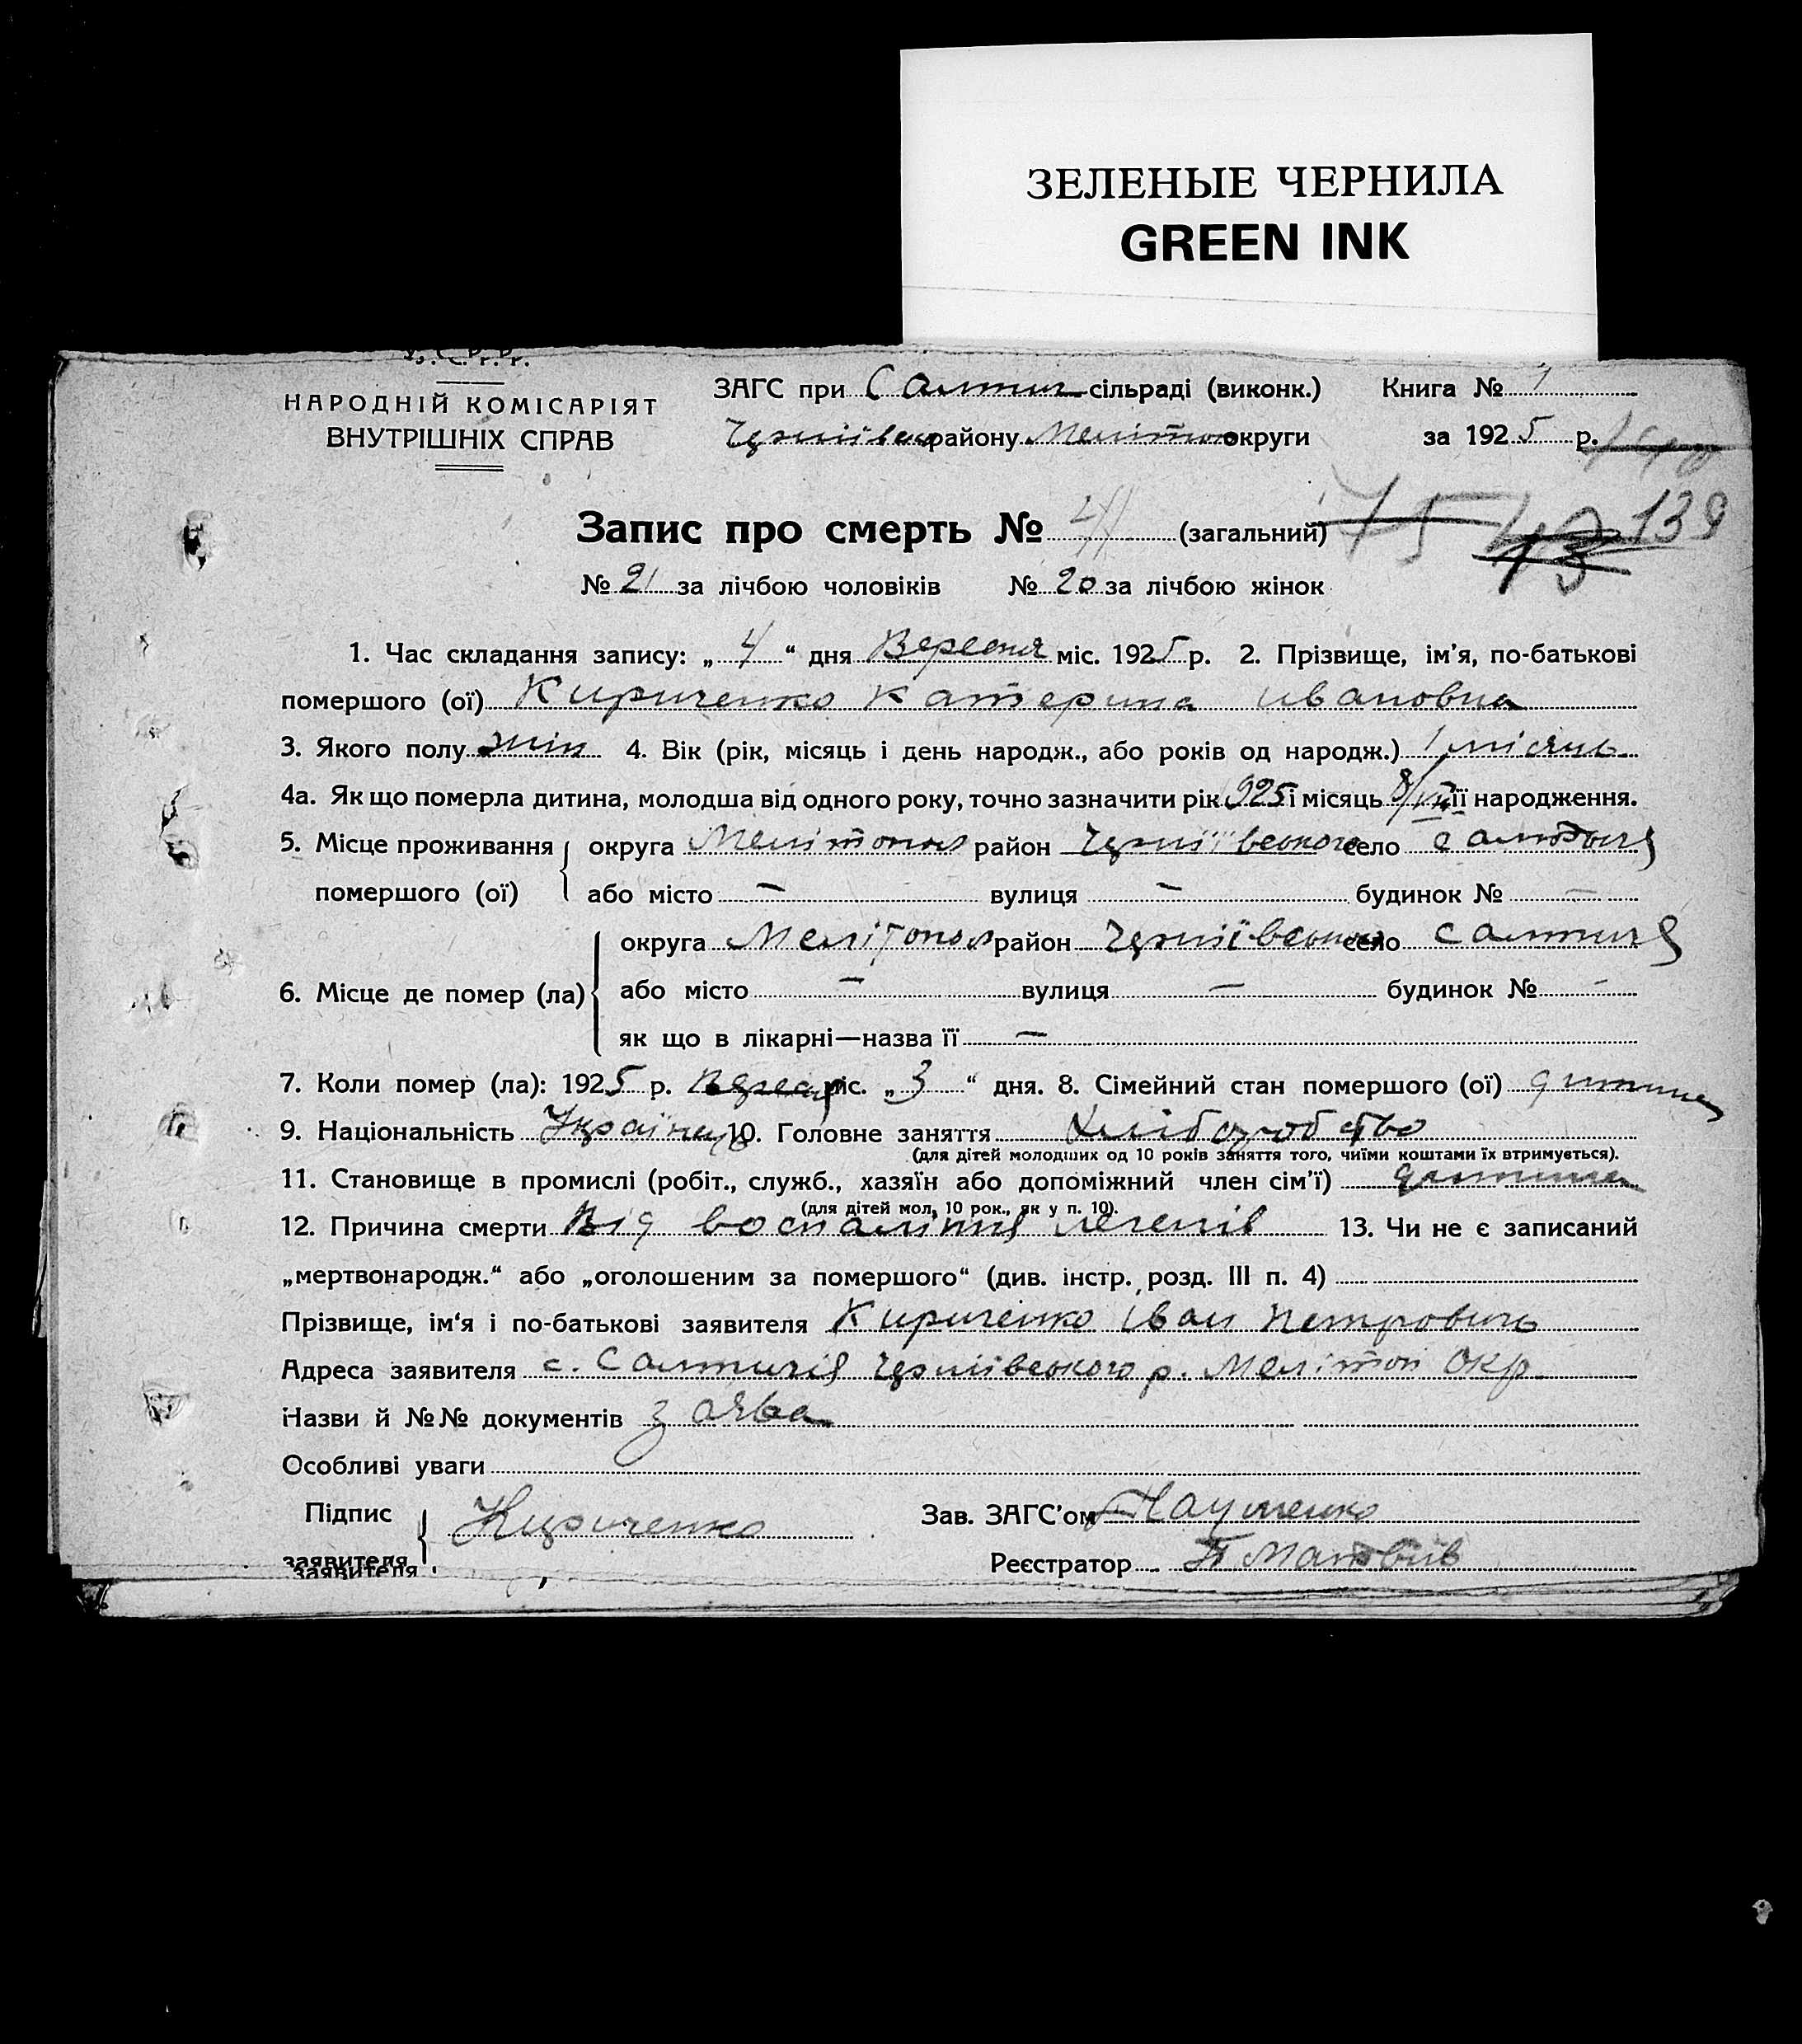 ЗЕЛЕНЫЕ ЧЕРНИЛА
GREEN INK
У. С. Р. Р.
НАРОДНІЙ КОМІСАРІЯТ
ВНУТРІШНІХ СПРАВ
ЗАГС при Салтич сільраді (виконк.) Книга № 1
району Меліто округи за 1925 р.
139
Запис про смерть № 41 (загальний) 75
№ 21 за лічбою чоловіків № 20 за лічбою жінок
1. Час складання запису: „ 4 “ дня Вересня міс. 1925 р. 2. Прізвище, ім’я, по-батькові
помершого (ої) Кириченко Катерина Ивановна
3. Якого полу жін 4. Вік (рік, місяць і день народж., або років од народж.) 1 місяць
4а. Як що померла дитина, молодша від одного року, точно зазначити рік 925 і місяць 8/VII її народження.
5. Місце проживання помершого (ої) округа Мелітопол район село Салтичя
або місто — вулиця — будинок № —
6. Місце де помер (ла) округа Мелітопол район село Салтичя
або місто — вулиця — будинок № —
як що в лікарні—назва її —
7. Коли помер (ла): 1925 р. міс. „ 3 “ дня. 8. Сімейний стан помершого (ої) дитина
9. Національність 10. Головне заняття Хліборобство
(для дітей молодших од 10 років заняття того, чиїми коштами їх втримується).
11. Становище в промислі (робіт., служб., хазяїн або допоміжний член сім’ї) дитина
(для дітей мол. 10 рок., як у п. 10).
12. Причина смерти Від воспалітня легенів 13. Чи не є записаний
„мертвонародж.“ або „оголошеним за помершого“ (див. інстр. розд. III п. 4)
Прізвище, ім‘я і по-батькові заявителя Кириченко Іван Петрович
Адреса заявителя с. Салтичія р. Мелітоп Окр.
Назви й №№ документів заява
Особливі уваги
Підпис заявителя Кириченко Зав. ЗАГС’ом
Реєстратор П Матвіїв
заявителя